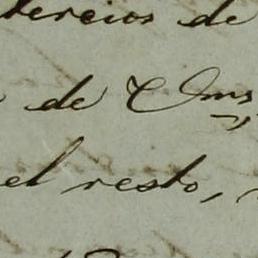 tercios de
de Oms,
el resto,